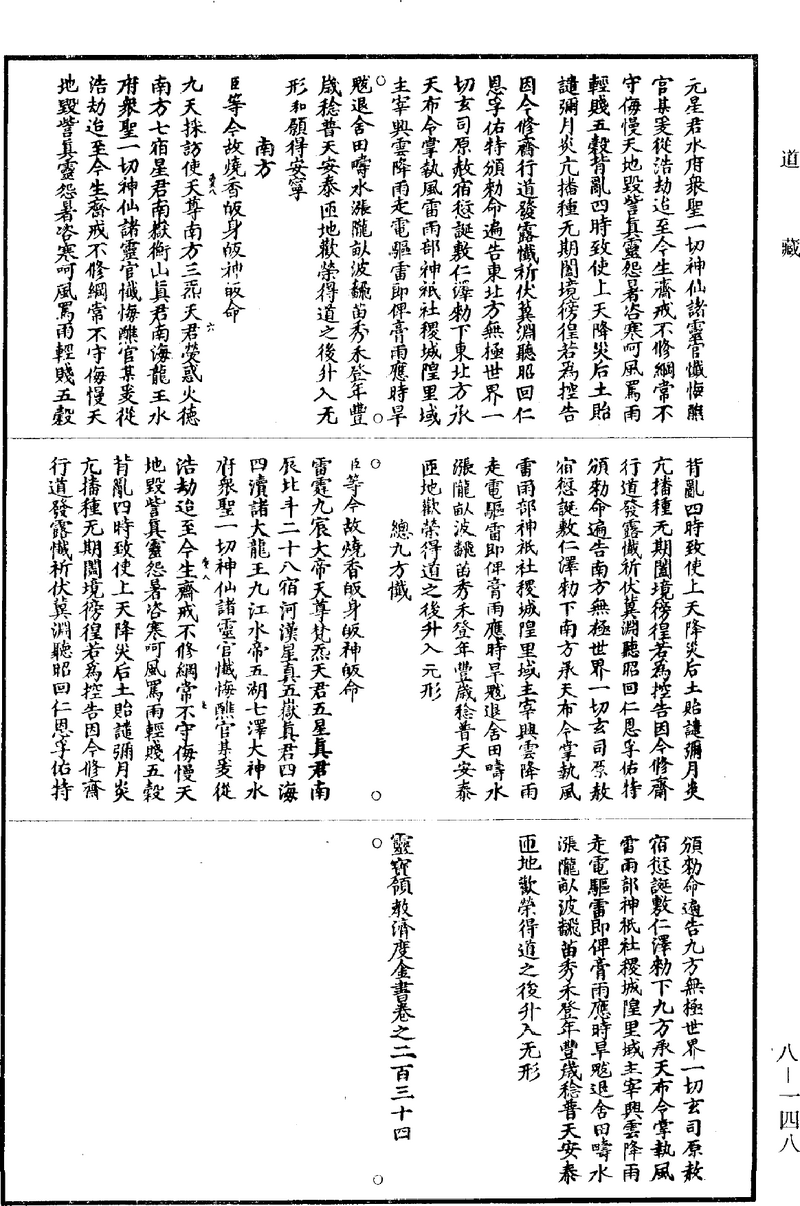 道藏
元星君水府衆聖一切神仙諸靈官懺悔醮
官某爰從浩劫迨至今生齋戒不修綱常不
守侮慢天地毀訾真靈怨暑咨寒呵風罵雨
輕賤五穀背亂四時致使上天降災后土貽
譴彌月炎亢播種无期闔境徬徨若為控告
因今修齋行道發露懺祈伏蘄淵聽昭回仁
恩孚佑特頒勑命遍告東北方無極世界一
切玄司原赦宿愆誕敷仁澤勑下東北方承
天布令掌執風雷雨部神祇社稷城隍里域
主宰興雲降雨走電驅雷即俾膏雨應時旱
魃退舍田疇水漲隴畝波飜苗秀禾登年豐
歲稔普天安泰匝地歡榮得道之後升入无
形和願得安寧
南方
臣等今故燒香皈身皈神皈命
九天採訪使天尊南方三炁天君熒惑火德
南方七宿星君南嶽衡山真君南海龍王水
府衆聖一切神仙諸靈官懺悔醮官某爰從
浩劫迨至今生齋戒不修綱常不守侮慢天
地毀訾真靈怨暑咨寒呵風罵雨輕賤五穀
背亂四時致使上天降災后土貽譴彌月炎
亢播種无期闔境徬徨若為控告因今修齋
行道發露懺祈伏蘄淵聽昭回仁恩孚佑特
頒勑命遍告南方無極世界一切玄司原赦
宿愆誕敷仁澤勑下南方承天布令掌執風
雷雨部神祇社稷城隍里域主宰興雲降雨
走電驅雷即俾膏雨應時旱魃退舍田疇水
漲隴畝波飜苗秀禾登年豐歲稔普天安泰
匝地歡榮得道之後升入无形
總九方懺
臣等今故燒香皈身皈神皈命
雷霆九宸大帝天尊梵炁天君五星真君南
辰北斗二十八宿河漢星真五嶽真君四海
四瀆諸大龍王九江水帝五湖七澤大神水
府衆聖一切神仙諸靈官懺悔醮官某爰從
浩劫迨至今生齋戒不修綱常不守侮慢天
地毀訾真靈怨暑咨寒呵風罵雨輕賤五穀
背亂四時致使上天降災后土貽譴彌月炎
亢播種无期闔境徬徨若為控告因今修齋
行道發露懺祈伏蘄淵聽昭回仁恩孚佑特
頒勑命遍告九方無極世界一切玄司原赦
宿愆誕敷仁澤勑下九方承天布令掌執風
雷雨部神祇社稷城隍里域主宰興雲降雨
走電驅雷即俾膏雨應時旱魃退舍田疇水
漲隴畝波飜苗秀禾登年豐歲稔普天安泰
匝地歡榮得道之後升入无形
靈寶領教濟度金書卷之二百三十四
八—一四八